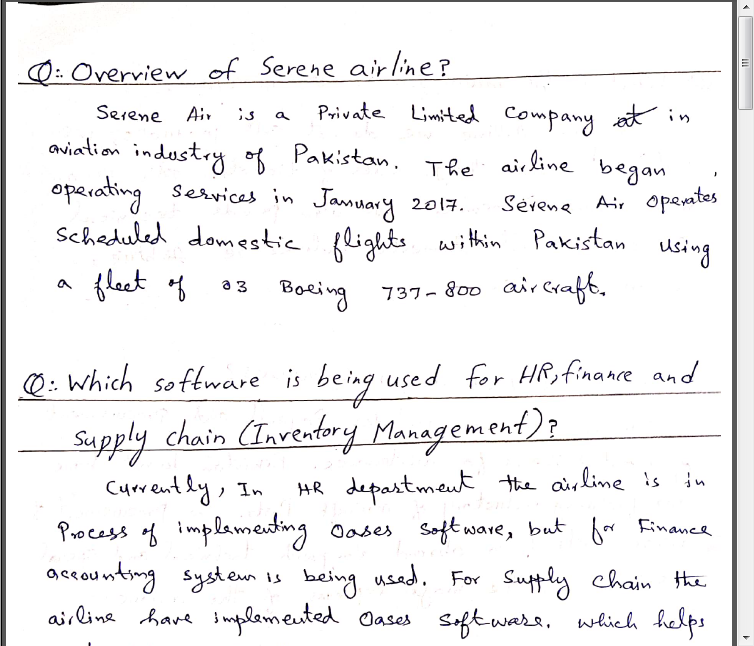 Q:- Overview of Serene airline?
Serene Air is a Private Limited Company at in
aviation industry of Pakistan. The airline began
operating services in January 2017. Serene Air Operates
Scheduled domestic flights within Pakistan using
a fleet of 03 Boeing 737-800 aircraft.
Q:- Which software is being used for HR, finance and
supply chain (Inventory Management)?
Currently, In HR department the airline is in
Process of implementing Oases software, but for Finance
accounting system is being used. For Supply chain the
airline have implemented Oases software. which helps